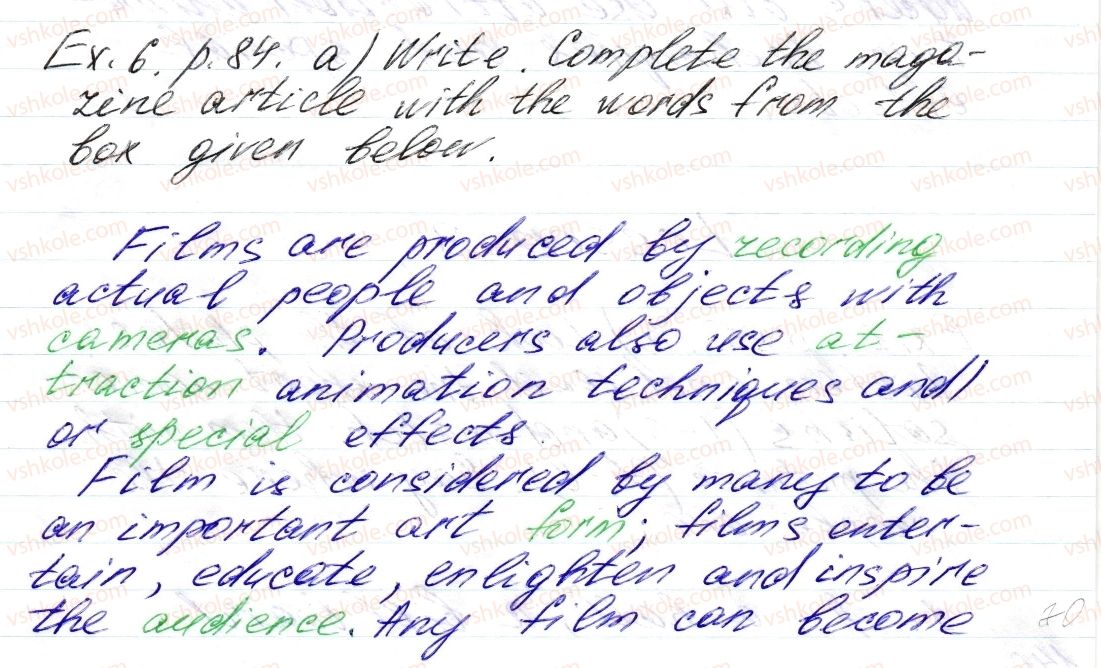 Ex. 6. p. 84. a) Write. Complete the maga-
zine article with the words from the
box given below.
Films are produced by recording
actual people and objects with
cameras. Producers also use at-
traction animation techniques and/
or special effects.
Film is considered by many to be
an important art form; films enter-
tain, educate, enlighten and inspire
the audience. Any film can become
70